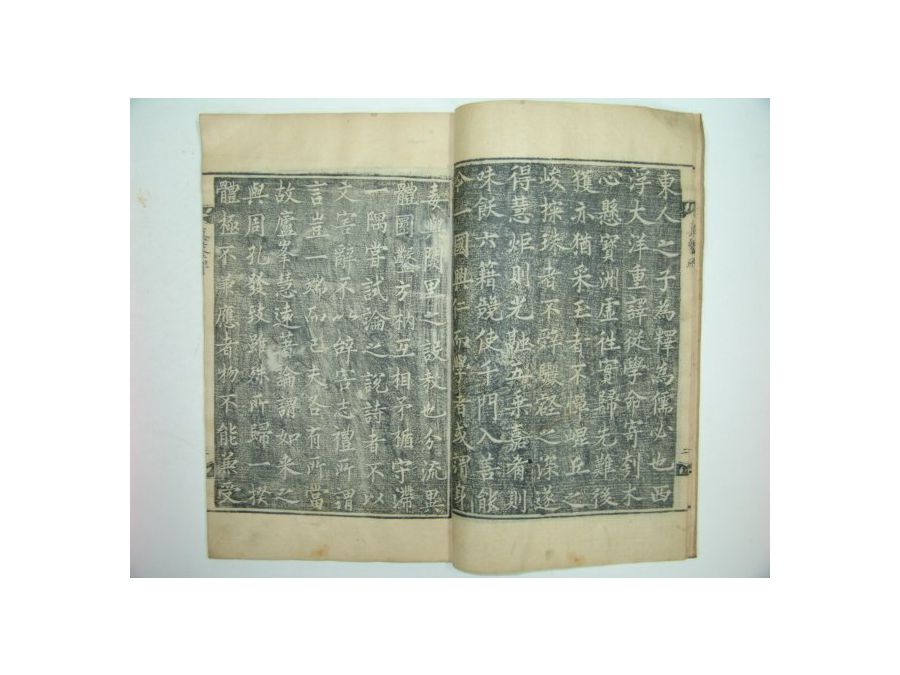 東人之子為釋為儒必也西
浮大洋重譯從學命寄刳木
心懸寶洲虛往實歸先難後
獲亦猶采玉者不憚崐丘之
峻探珠者不辭驪壑之深遂
得慧炬則光融五乘嘉肴則
味飫六籍競使千門入善能
令一國興仁而學者或謂身
毒與闕里之說教也分流異
體圜鑿方枘互相矛楯守滯
一隅嘗試論之說詩者不以
文害辭不以辭害志禮所謂
言豈一端而已夫各有所當
故廬峯慧遠著論謂如来之
與周孔發致雖殊所歸一揆
體極不兼應者物不能兼受